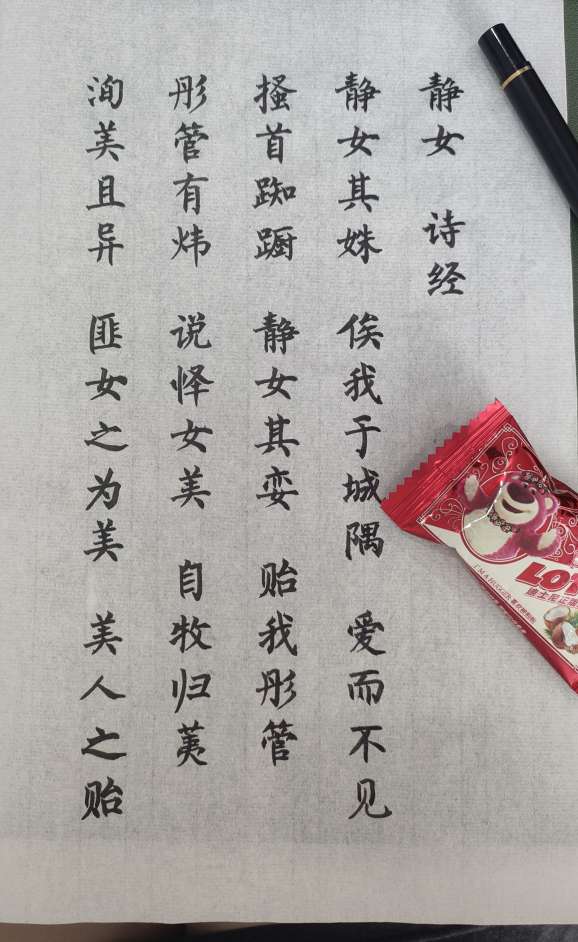 静女 诗经
静女其姝 俟我于城隅 爱而不见
搔首踟蹰 静女其娈 贻我彤管
彤管有炜 说怿女美 自牧归荑
洵美且异 匪女之为美 美人之贻
LOT
I'M A HUGGER